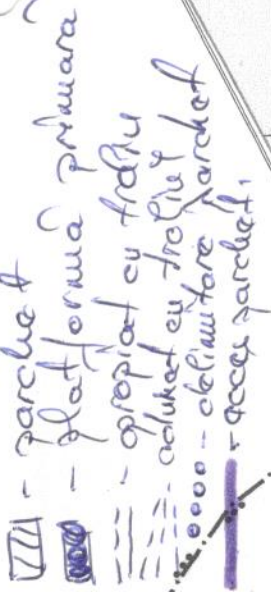 - parchet
- platformă primara
- apropiat cu trafu
adunat cu troliu
- delimitare parchet
- acces parchet.